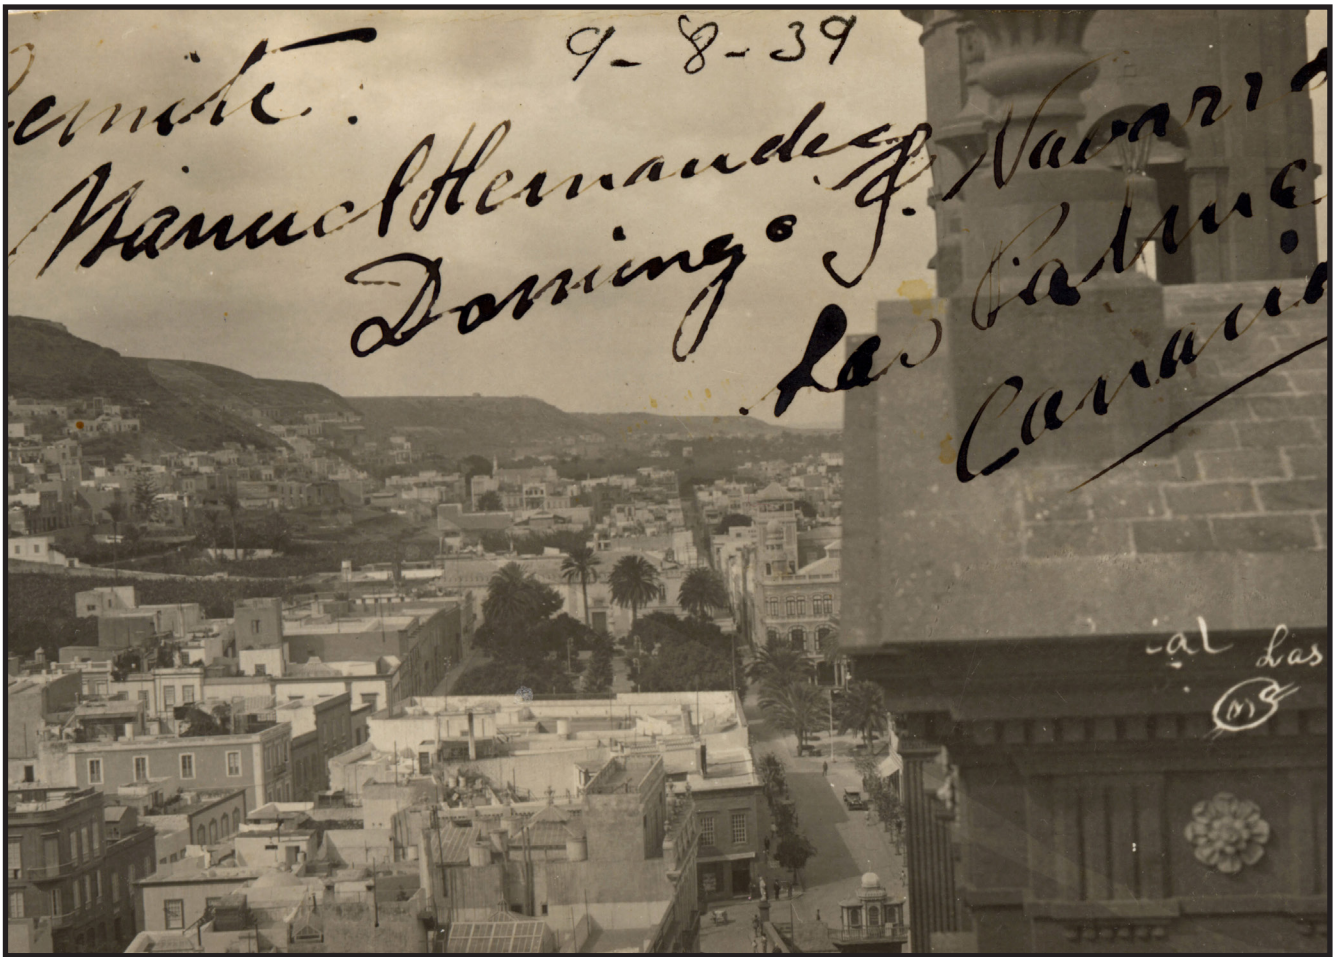 Remite.
9-8-39
Manuel Hernandez
Doming° J. Navarro
Las Palmas
Canaria
al Las